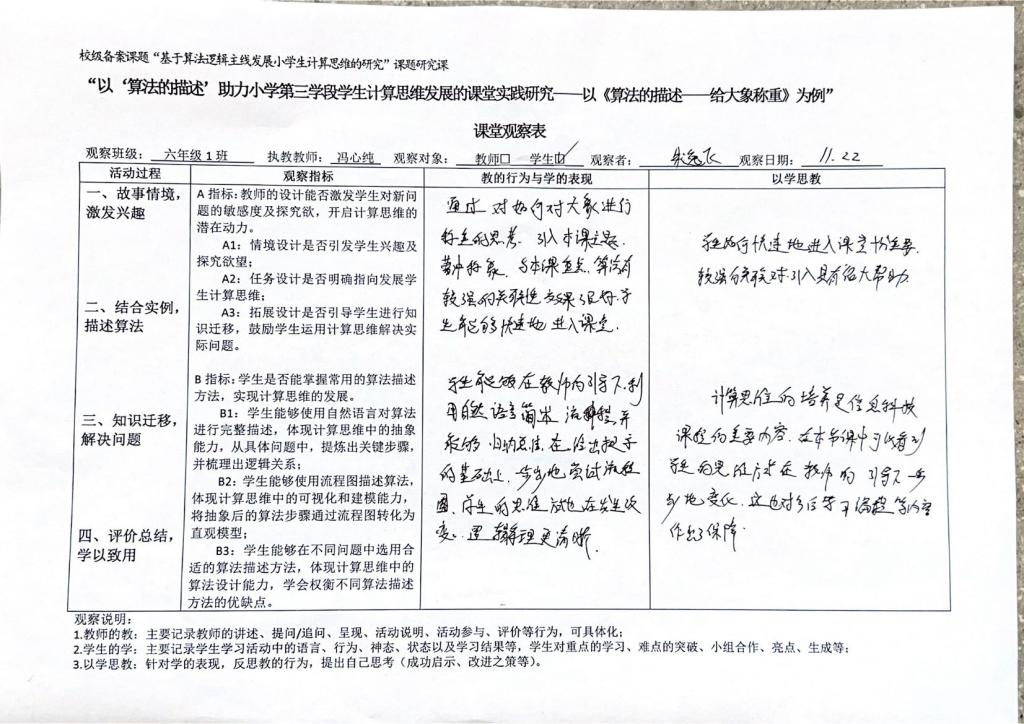 校级备案课题“基于算法逻辑主线发展小学生计算思维的研究”课题研究课
“以‘算法的描述’助力小学第三学段学生计算思维发展的课堂实践研究——以《算法的描述——给大象称重》为例”
课堂观察表
观察班级：六年级1班 执教教师：冯心纯 观察对象：教师□ 学生☑ 观察者： 观察日期：11.22
活动过程 观察指标 教的行为与学的表现 以学思教
一、故事情境，
激发兴趣
二、结合实例，
描述算法
三、知识迁移，
解决问题
四、评价总结，
学以致用
A 指标：教师的设计能否激发学生对新问
题的敏感度及探究欲，开启计算思维的
潜在动力。
A1：情境设计是否引发学生兴趣及
探究欲望；
A2：任务设计是否明确指向发展学
生计算思维；
A3：拓展设计是否引导学生进行知
识迁移，鼓励学生运用计算思维解决实
际问题。
B 指标：学生是否能掌握常用的算法描述
方法，实现计算思维的发展。
B1：学生能够使用自然语言对算法
进行完整描述，体现计算思维中的抽象
能力，从具体问题中，提炼出关键步骤，
并梳理出逻辑关系；
B2：学生能够使用流程图描述算法，
体现计算思维中的可视化和建模能力，
将抽象后的算法步骤通过流程图转化为
直观模型；
B3：学生能够在不同问题中选用合
适的算法描述方法，体现计算思维中的
算法设计能力，学会权衡不同算法描述
方法的优缺点。
通过对如何对大象进行
称重的思考，引入本课主题，
曹冲称象，与本课重点，算法有
较强的关联性，效果很好，学
生能够快速地进入课堂．
学生能够在教师的引导下，利
用自然语言
的基础上，一步步地尝试流程
图，学生的思维 也在发生改
变，逻辑 更清晰．
学生如何快速地进入课堂 重要．
较强的关联对引入具有很大帮助．
计算思维的培养是信息科技
课程的重要内容，在本节课中可以看到
学生的思维方式在教师的引导下一步
步地变化，这也对今后学习编程等内容
作出了保障．
观察说明：
1.教师的教：主要记录教师的讲述、提问/追问、呈现、活动说明、活动参与、评价等行为，可具体化；
2.学生的学：主要记录学生学习活动中的语言、行为、神态、状态以及学习结果等，学生对重点的学习、难点的突破、小组合作、亮点、生成等；
3.以学思教：针对学的表现，反思教的行为，提出自己思考（成功启示、改进之策等）。